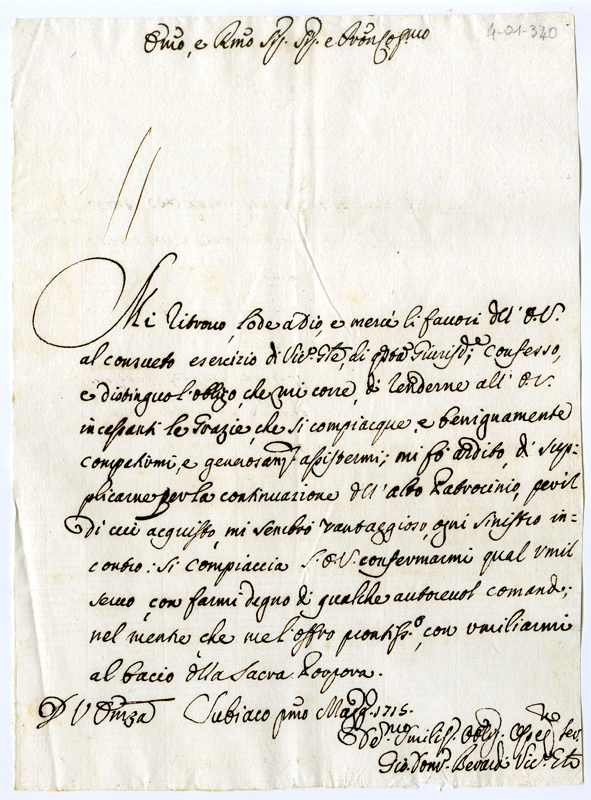 Emo, e Rmo Sig. Sig. e Pron Colmo
4-01-340
Mi ritrovo, lode a Dio, e mercè li favori dell' E.V.
al consueto esercizio di Vic.o Gle, di qsta Giurisd.e Confesso,
e distinguo l'obligo, che mi corre, di renderne all' E.V.
incessanti le Grazie, che si compiacque, e benignamente
compatirmi, e generosamte assistermi; mi fò ardito, di sup-
plicarne per la continuazione dell' alto Patrocinio, per il
di cui acquisto, mi sembrò vantaggioso, ogni sinistro in-
contro: si compiaccia l'E.V. confermarmi qual umil
servo, con farmi degno di qualche autorevol comando;
nel mentre che me l'offro prontiss.o, con umiliarmi
al bacio della Sacra Porpora.
D V Emza Subiaco pmo Magg.o 1715.
Umiliss. Oblig. serv.
Gio. Dom.co Berardi Vic.o Gle